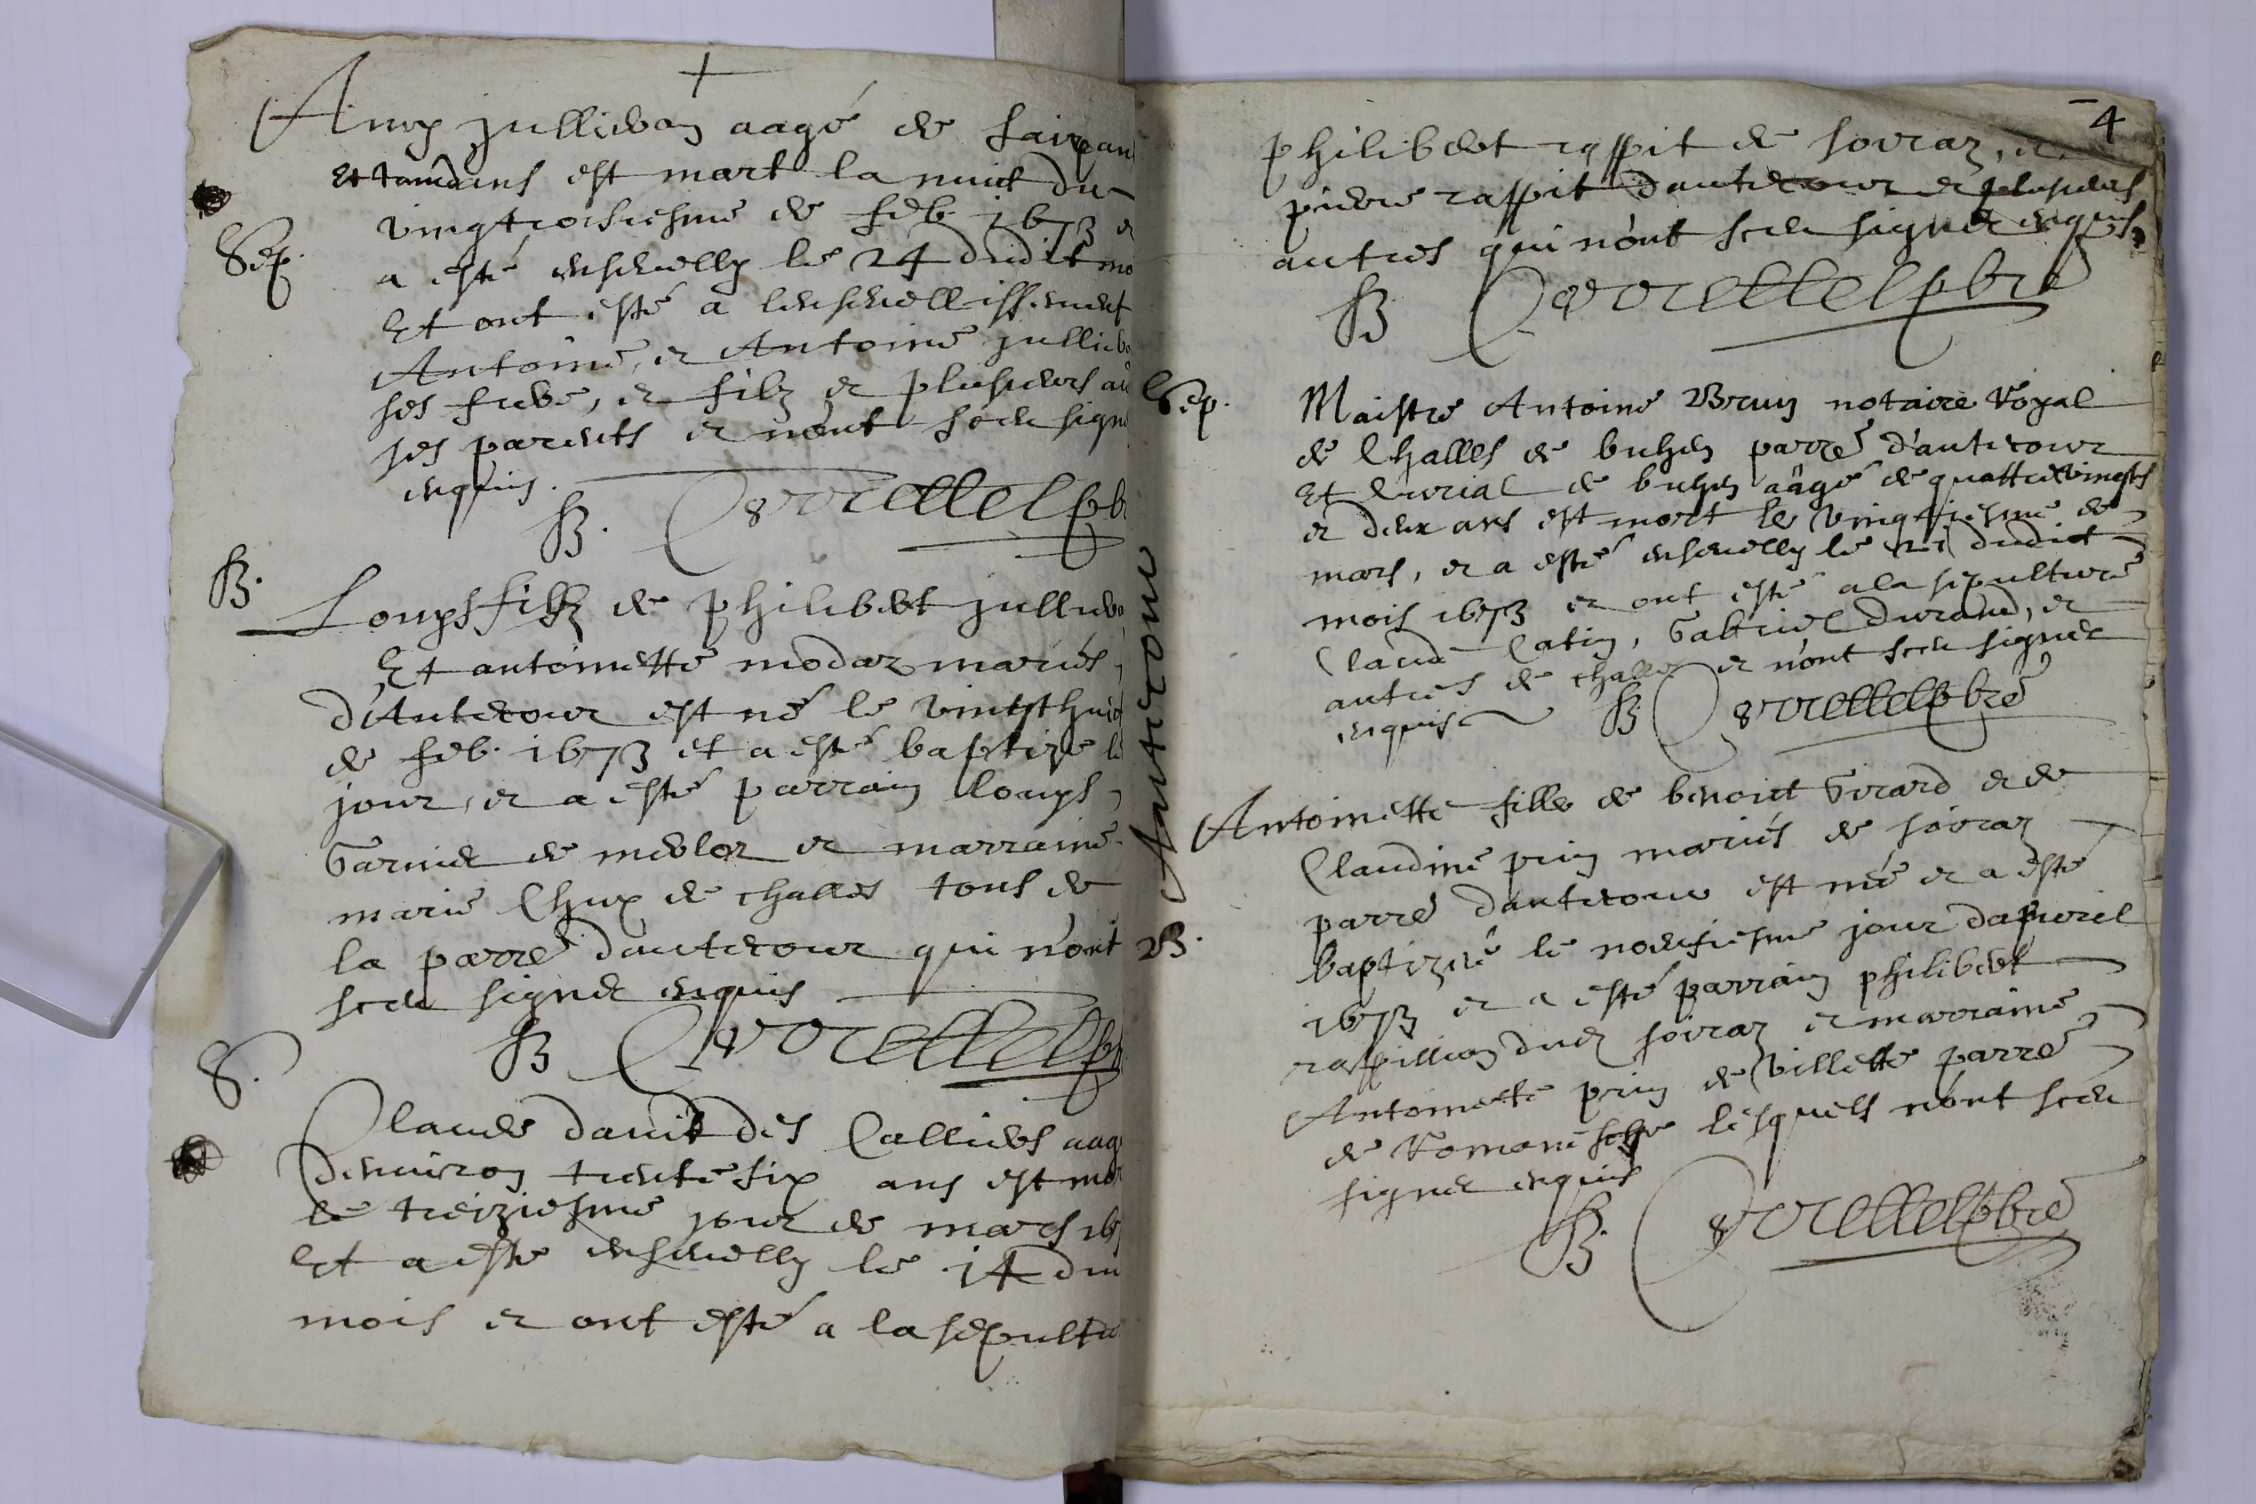 +
Amy Jullieron aagé de
Et ans est mort la nuict du
vingtroisiesme de feb. 1673 et
Sep.
a esté ensevelly le 24 dudit mo
Et ont esté a lensevellissement
Antoine, et Antoine Jullie
ses frere, et filz et plusieurs au
ses parents et n'ont sceu signe
enquis.
B. Corcellel pb
B.
Loups filz de philibert Jullier
Et antoinette modaz mariés
d'Antecour est né le vingthuic
de feb. 1673 et a esté baptize le
jour, et a esté parrain Loups
Garnier de merloz et marraine
marie Chux de challes tous de
la parre d'antecour qui n'ont
sceu signer enquis
B Corcellel pb
S.
Claude davit des Calliers aag
denviron trente six ans est mor
le treiziesme jour de mars 16
Et a este ensevelly le 14 du
mois et ont esté a la sepultu
Antecour
4
philibert raspit de soiraz, et
pierre raspit d'antecour et plusieurs
autres qui n'ont sceu signer enquis
B Corcellel pbre
Sep.
Maistre Antoine Brun notaire Royal
de Challes de buhen parre d'antecour
Et Curial de buhen aâgé de quattrevingts
et deux ans est mort le vingtiesme de
mars, et a esté ensevelly le 21 dudict
mois 1673 et ont esté a la sepulture
Claude Catin, Gabriel Durand, et
autres de challes et n'ont sceu signer
enquis B Corcellel pbre
Antoinette fille de benoict Girard et de
Claudine prin mariés de soiraz
parre d'antecour est née et a esté
B.
baptizée le neufiesme jour dapvril
1673 et a esté parrain philibert
raspillion dud soiraz et marraine
Antoinette prin de Villette parre
de Romanesche lesquels n'ont sceu
signer enquis
B. Corcellel pbre